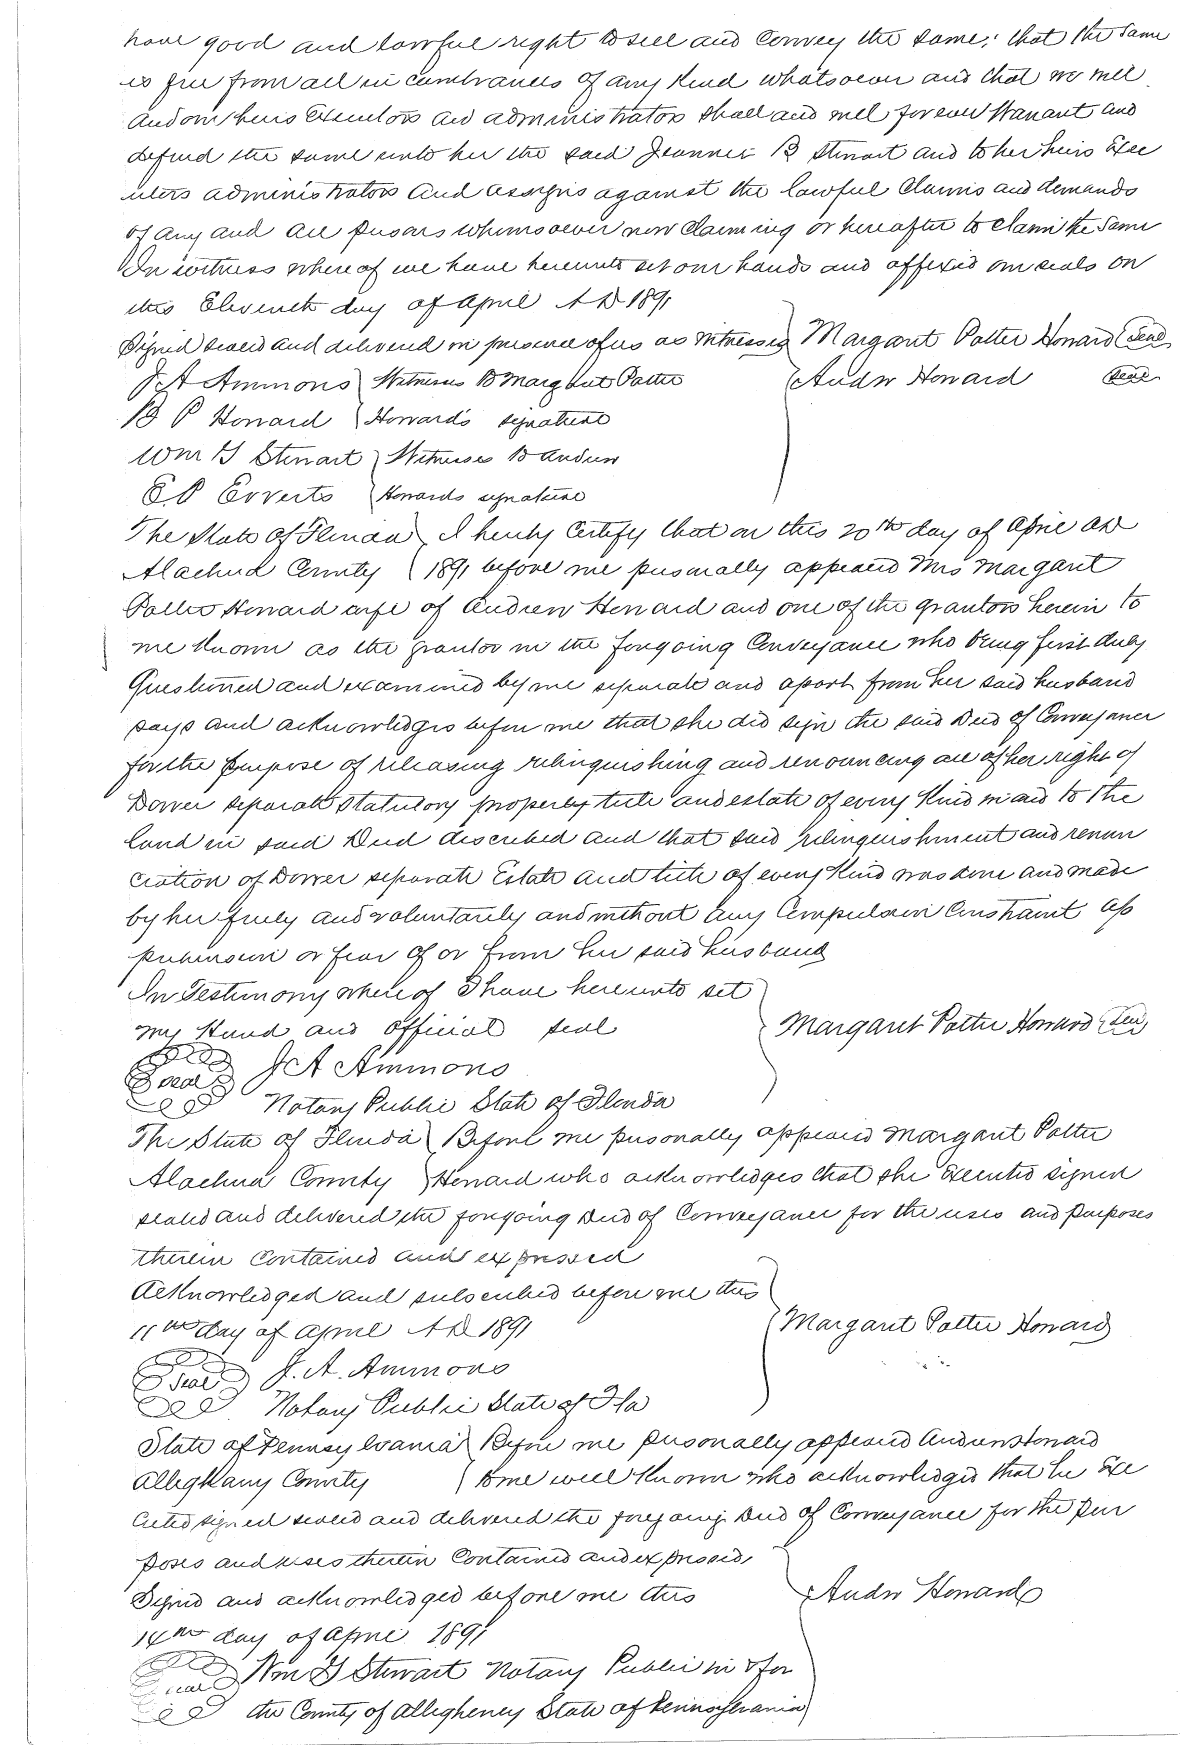 have good and lawful right to sell and convey the same; that the same
is free from all incumbrances of any kind whatsoever and that we will
and our heirs Executors and administrators shall and will forever Warrant and
defend the same unto her the said Jeannei B Stewart and to her heirs Exec
utors administrators and assigns against the lawful Claims and demands
of any and all persons whomsoever now Claiming or hereafter to claim the same
In witness whereof we have hereunto set our hands and affixed our seals on
this Eleventh day of April A D 1891
Signed sealed and delivered in presence of us as witnesses Margaret Potter Howard Seal
J A Ammons Witnesses to Margaret Potter Andw Howard Seal
B P Howard Howard's signature
Wm G Stewart Witnesses to Andrew
E P Howards signature
The State of Florida I hereby Certify that on this 20th day of April AD
Alachua County 1891 before me personally appeared Mrs Margaret
Potter Howard wife of Andrew Howard and one of the grantors herein to
me known as the grantor in the foregoing Conveyance who being first duly
Questioned and examined by me separate and apart from her said husband
says and acknowledges before me that she did sign the said Deed of Conveyance
for the purpose of releasing relinquishing and renouncing all of her right of
Dower separate statutory property title and estate of every Kind in and to the
land in said Deed described and that said relinquishment and renun
ciation of Dower separate Estate and title of every Kind was done and made
by her freely and voluntarily and without any Compulsion Constraint ap
prehension or fear of or from her said husband
In Testimony whereof I have hereunto set
my Hand and official seal Margaret Potter Howard Seal
Seal J A Ammons
Notary Public State of Florida
The State of Florida Before me personally appeared Margaret Potter
Alachua County Howard who acknowledges that she Executed signed
sealed and delivered the foregoing Deed of Conveyance for the uses and purposes
therein Contained and expressed
Acknowledged and subscribed before me this
11th day of April A D 1891 Margaret Potter Howard
Seal J. A. Ammons
Notary Public State of Fla
State of Pennsylvania Before me personally appeared Andrew Howard
Alleghany County to me well Known who acknowledged that he Exe
cuted signed sealed and delivered the foregoing Deed of Conveyance for the pur
poses and uses therein Contained and expressed,
Signed and acknowledged before me this Andw Howard
14th day of April 1891
Seal Wm G Stewart Notary Public in & for
the County of Allegheney State of Pennsylvania